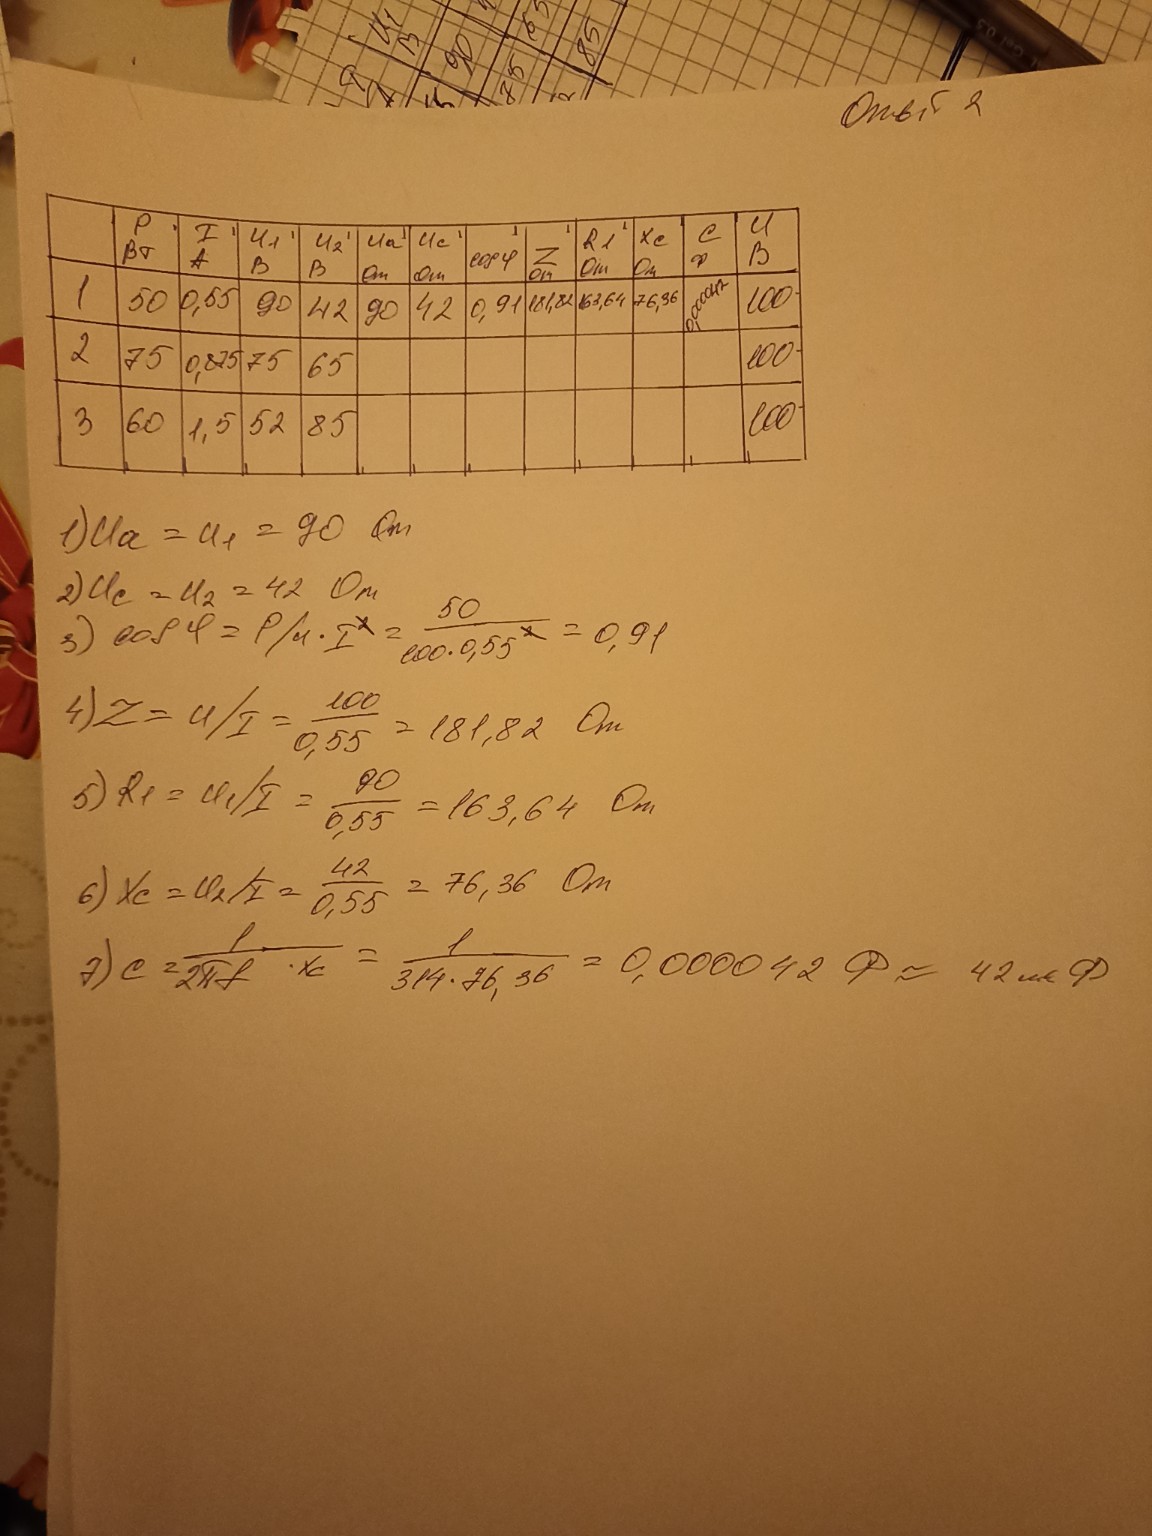 U1 В 90 75
65 85
Опыт 2
P Вт I А U1 В U2 В Ua Om Uc Om cosφ Z Om R1 Om Xc Om C Ф U В
1 50 0,55 90 42 90 42 0,91 181,82 163,64 76,36 0,000042 100
2 75 0,875 75 65 100
3 60 1,5 52 85 100
1) Ua = U1 = 90 Om
2) Uc = U2 = 42 Om
3) cosφ = P/U·I = 50 / 100·0,55 = 0,91
4) Z = U/I = 100 / 0,55 = 181,82 Om
5) R1 = U1/I = 90 / 0,55 = 163,64 Om
6) Xc = U2/I = 42 / 0,55 = 76,36 Om
7) C = 1 / 2πf·Xc = 1 / 314·76,36 = 0,000042 Ф ≈ 42 мкФ